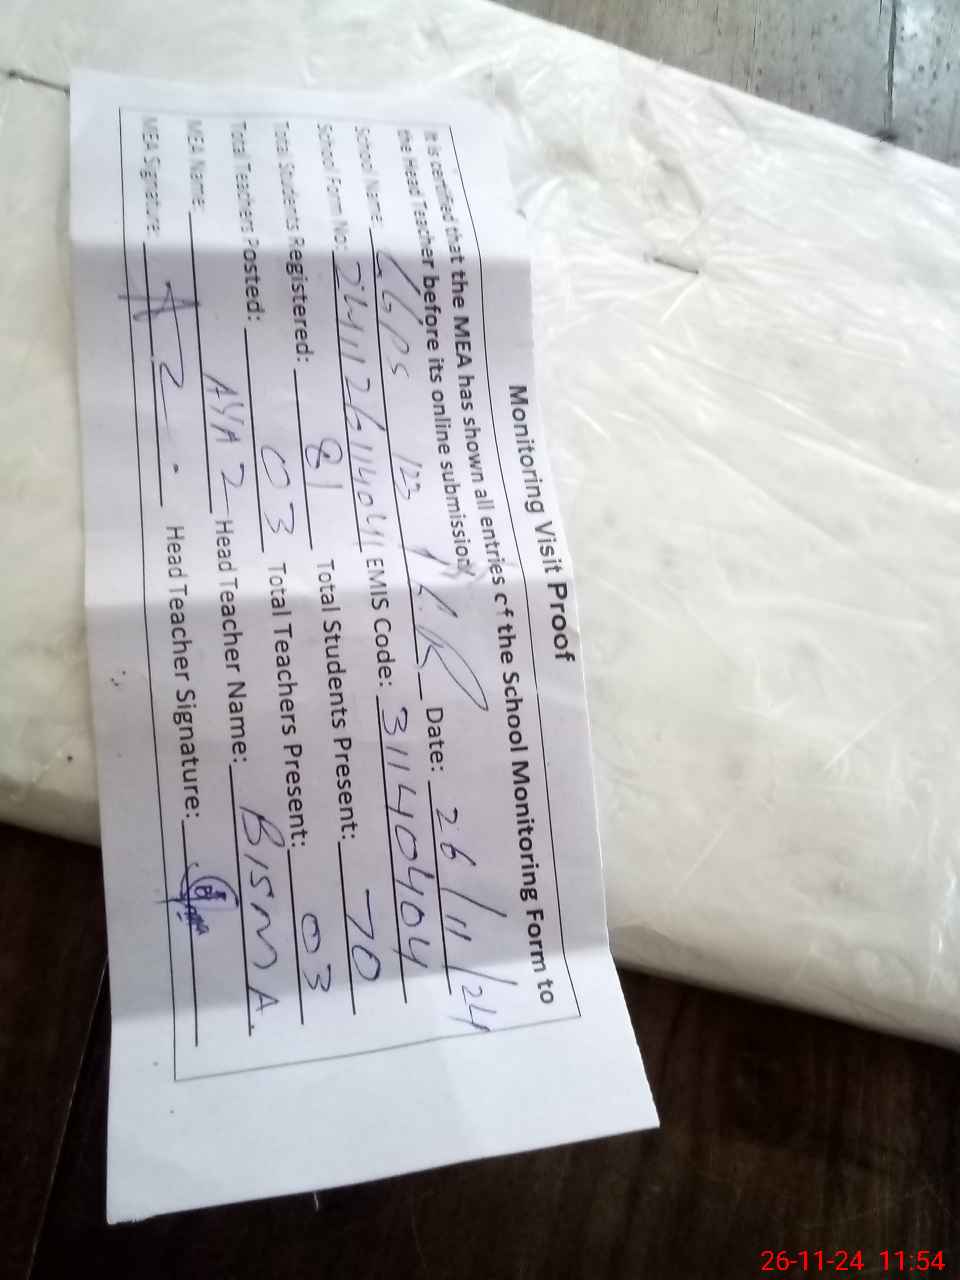 Monitoring Visit Proof
It is certified that the MEA has shown all entries of the School Monitoring Form to
the Head Teacher before its online submission.
School Name: GGPS 123 Date: 26/11/24
School Form No: 24112611404 EMIS Code: 31140404
Total Students Registered: 81 Total Students Present: 70
Total Teachers Posted: 03 Total Teachers Present: 03
MEA Name: AYAZ Head Teacher Name: BISMA.
MEA Signature: Head Teacher Signature:
26-11-24 11:54